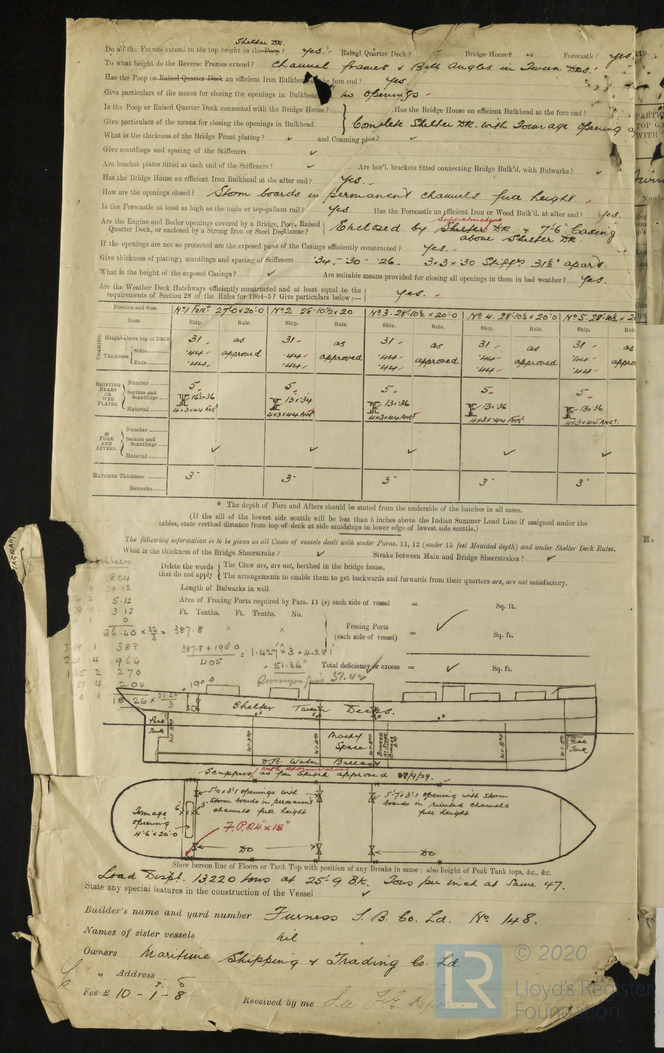 Shelter Dk.
Do all the Frames extend to the top height in the Poop? Yes. Raised Quarter Deck? " Bridge House? " Forecastle? Yes
To what height do the Reverse Frames extend? Channel frames & Bulb Angles in Tween Dks.
Has the Poop or Raised Quarter Deck an efficient Iron Bulkhead at the fore end? Yes
Give particulars of the means for closing the openings in Bulkhead no openings
Is the Poop or Raised Quarter Deck connected with the Bridge House? Has the Bridge House an efficient Bulkhead at the fore end?
Give particulars of the means for closing the openings in Bulkhead Complete Shelter Dk. with Tonnage opening
What is the thickness of the Bridge Front plating? ✓ and Coaming plate? ✓
Give scantlings and spacing of the Stiffeners ✓
Are bracket plates fitted at each end of the Stiffeners? ✓ Are hor'l. brackets fitted connecting Bridge Bulk'd. with Bulwarks? ✓
Has the Bridge House an efficient Iron Bulkhead at the after end? Yes.
How are the openings closed? Storm boards in permanent channels full height.
Is the Forecastle at least as high as the main or top-gallant rail? Yes Has the Forecastle an efficient Iron or Wood Bulk'd. at after end? Yes.
Superstructure
Are the Engine and Boiler openings covered by a Bridge, Poop, Raised Quarter Deck, or enclosed by a Strong Iron or Steel Deckhouse? Enclosed by Shelter Dk & 7'6" Casing above Shelter Dk.
If the openings are not so protected are the exposed parts of the Casings efficiently constructed? Yes.
Give thickness of plating; scantlings and spacing of Stiffeners .34 - 30 - 26. 3x3x30 Stiffrs 31½" apart.
What is the height of the exposed Casings? ✓ Are suitable means provided for closing all openings in them in bad weather? Yes.
Are the Weather Deck Hatchways efficiently constructed and at least equal to the requirements of Section 28 of the Rules for 1904-5? Give particulars below:— Yes.
Position and Size. No 1 Ford 27'0x20'0 No 2 28'10½x20 No 3. 28'10½x20'0 No 4. 28'10½x20'0 No 5. 28'10½x2
Item. Ship. Rule. Ship. Rule. Ship. Rule. Ship. Rule. Ship. Rule
COAMING Height above top of Deck 31 as 31 as 31 as 31 as 31 as
Thickness Sides .44 approved .44 approved .44 approved .44 approved .44 appro
Ends .44 .44 .44 .44 .44
SHIFTING BEAMS OR WEB PLATES Number 5 5 5 5 5
Section and Scantlings 16½x36 13x34 13x36 13x36 13x36
Material 4x3x44 Angs 4x3x44 Angs 4x3x44 Angs 4x3x44 Angs 4x3x44 Angs
* FORE AND AFTERS Number
Section and Scantlings ✓ ✓ ✓ ✓ ✓
Material
HATCHES Thickness 3" 3" 3" 3" 3"
Remarks
* The depth of Fore and Afters should be stated from the underside of the hatches in all cases.
(If the sill of the lowest side scuttle will be less than 6 inches above the Indian Summer Load Line if assigned under the
tables, state vertical distance from top of deck at side amidships to lower edge of lowest side scuttle.)
The following information is to be given in all Cases of vessels dealt with under Paras. 11, 12 (under 15 feet Moulded depth) and under Shelter Deck Rules.
What is the thickness of the Bridge Sheerstrake? ✓ Strake between Main and Bridge Sheerstrakes? ✓
Delete the words that do not apply { The Crew are, are not, berthed in the bridge house.
The arrangements to enable them to get backwards and forwards from their quarters are, are not satisfactory.
Length of Bulwarks in well
Area of Freeing Ports required by Para. 11 (e) each side of vessel = Sq. ft.
Ft. Tenths. Ft. Tenths. No.
Freeing Ports (each side of vessel) = ✓ Sq. ft.
5.12
3.12
0
36.40 x 32/3 = 387.8
387.8 + 195.0
405 = 1.427 x 3 x 4.281
Total deficiency or excess = ✓ Sq. ft.
51.36"
388
964
270
204
Shelter Tween Decks.
Peak Tank
Machy Space
D.B. Water Ballast
Peak Tank
Scuppers as per Sketch approved 27/9/29.
Tonnage opening 4'6x20'0
5'0x3'1 openings with storm boards in permanent channels full height
5'7x3'1 opening with storm boards in riveted channels full height
F.P. 24"x15"
DO DO
Show hereon line of Floors or Tank Top with position of any Breaks in same; also height of Peak Tank tops, &c., &c.
Load Displ. 13220 tons at 25'9 Bk. Tons per inch at same 47.
State any special features in the construction of the Vessel ✓
Builder's name and yard number Furness S. B. Co. Ld. No 148.
Names of sister vessels nil
Owners Maritime Shipping & Trading Co. Ld.
" Address
Fee £ 10 - 1 - 8
Received by me
LR
© 2020
Lloyd's Register
Foundation